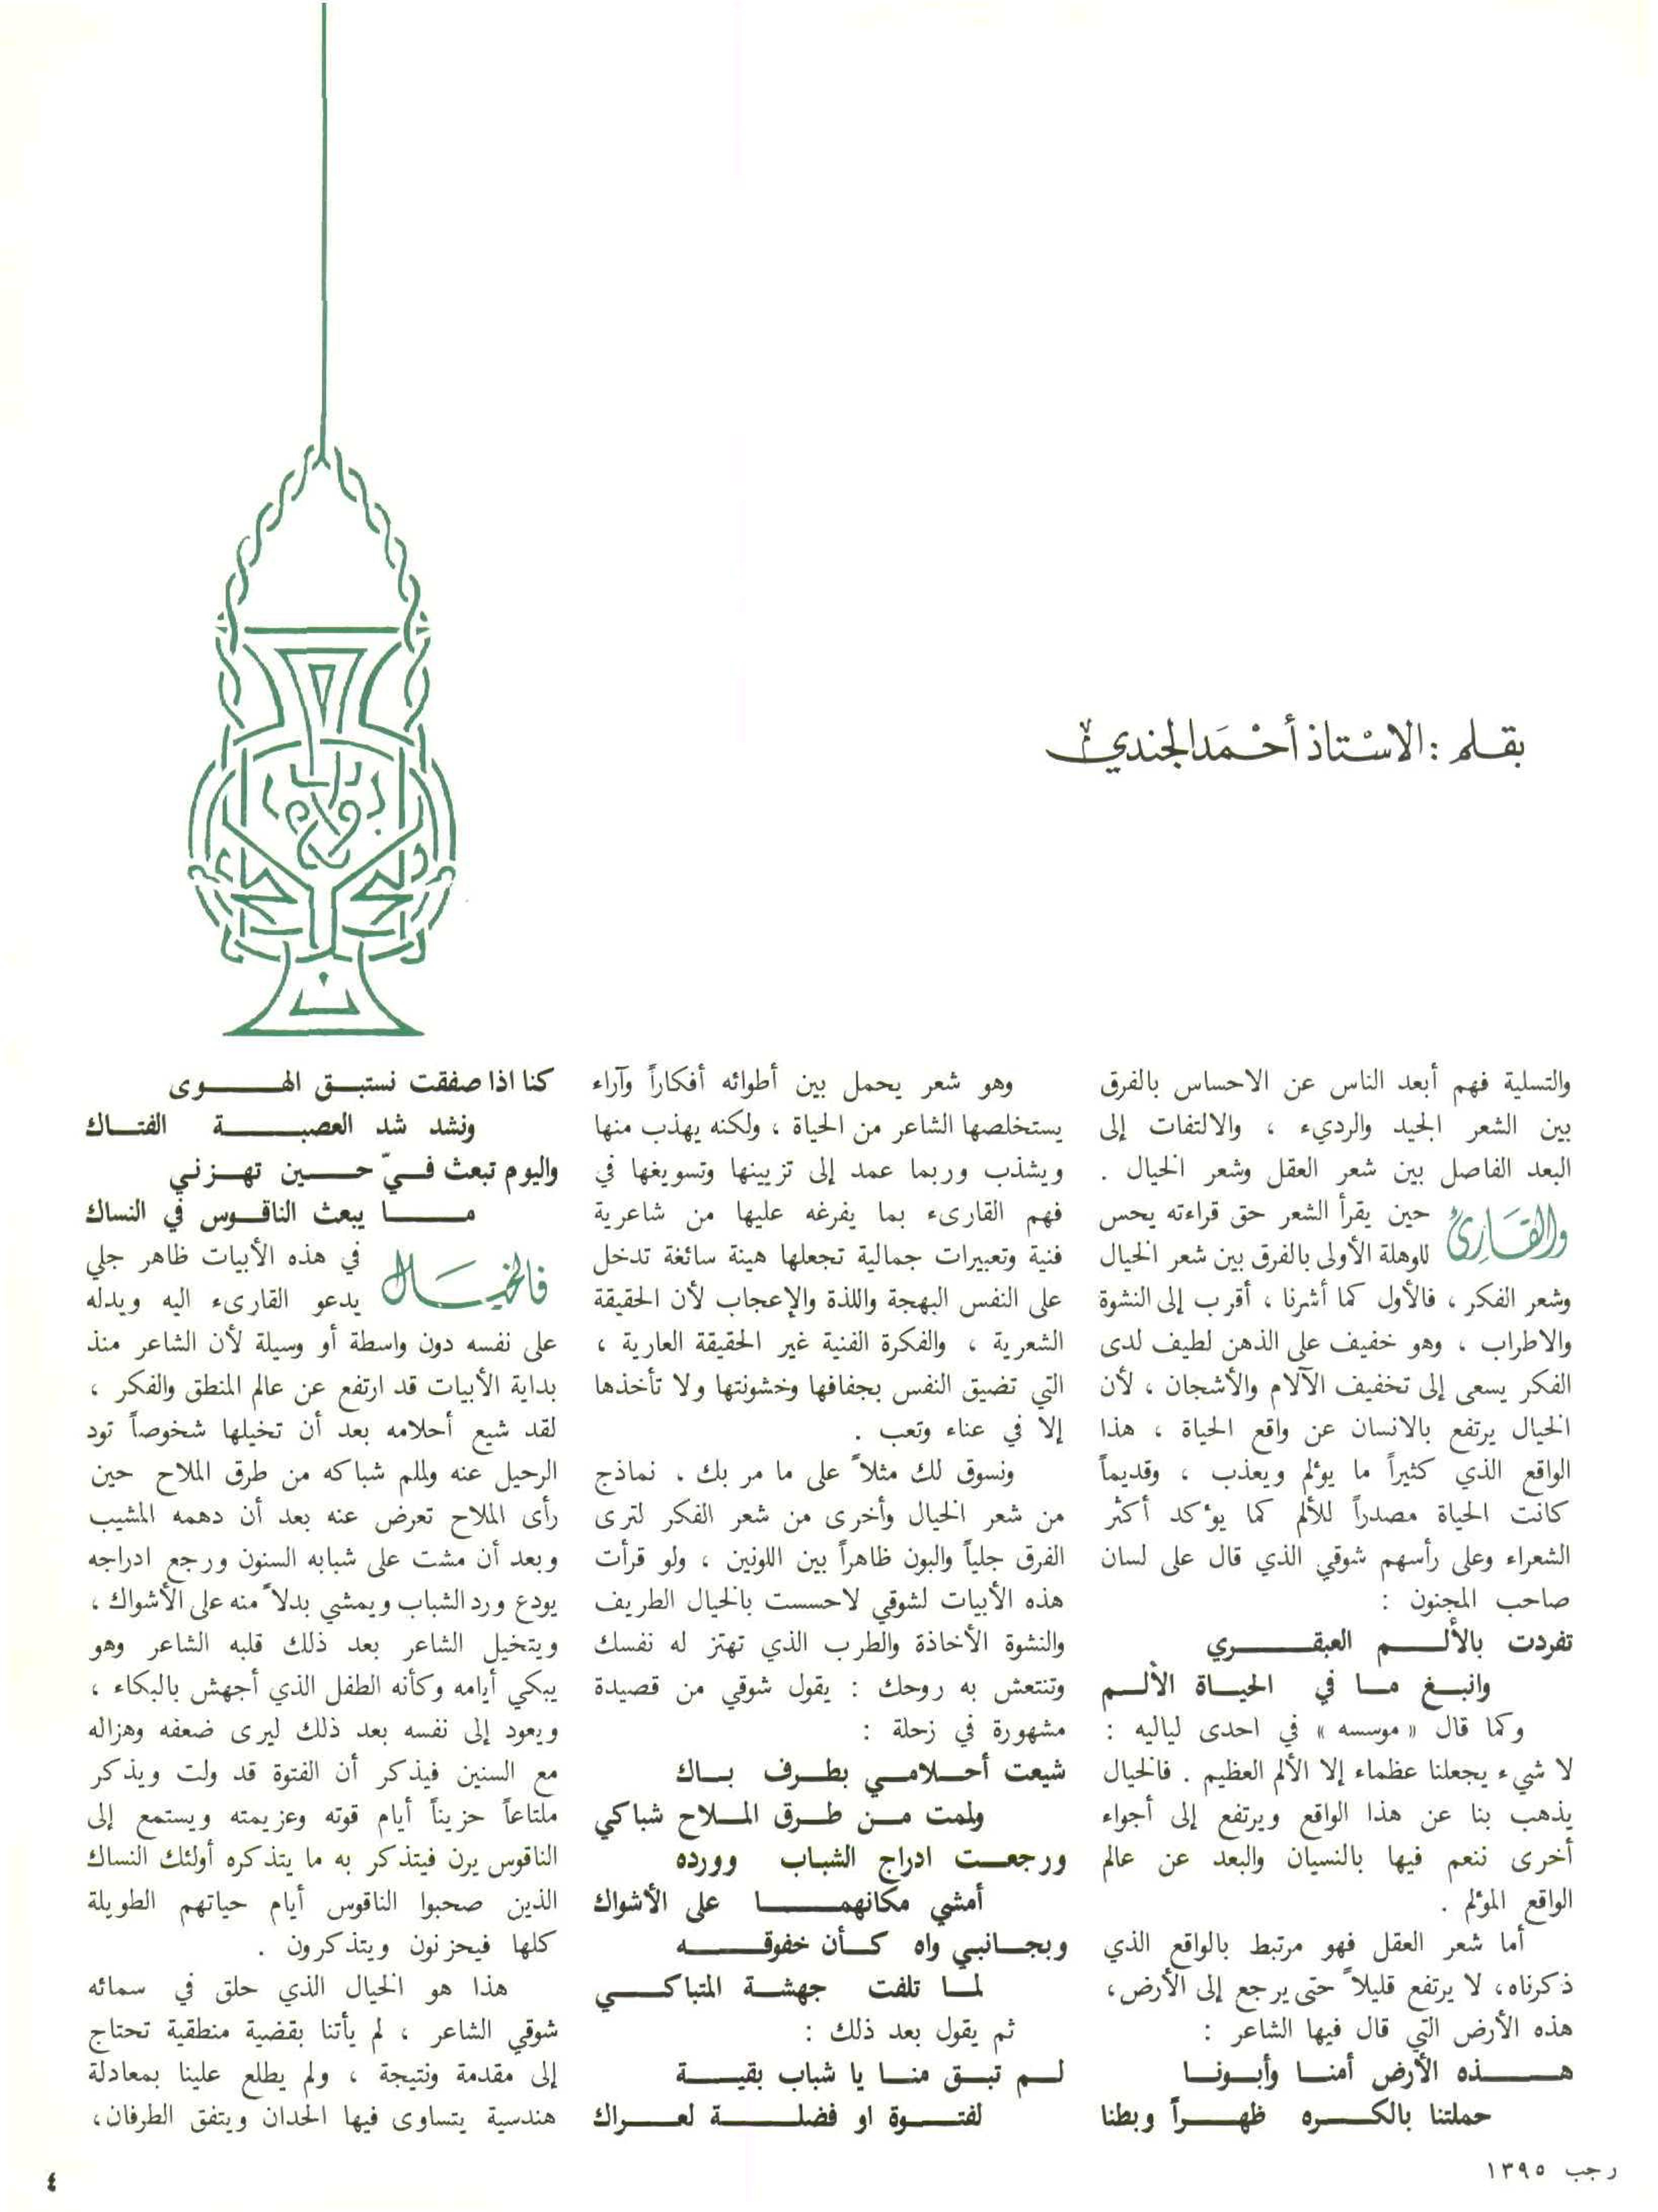 بقلم : الاستاذ أحمد الجندي
والتسلية فهم أبعد الناس عن الاحساس بالفرق
بين الشعر الجيد والرديء ، والالتفات إلى
البعد الفاصل بين شعر العقل وشعر الخيال .
والقارئ حين يقرأ الشعر حق قراءته يحس
للوهلة الأولى بالفرق بين شعر الخيال
وشعر الفكر ، فالأول كما أشرنا ، أقرب إلى النشوة
والاطراب ، وهو خفيف على الذهن لطيف لدى
الفكر يسعى إلى تخفيف الآلام والأشجان ، لأن
الخيال يرتفع بالانسان عن واقع الحياة ، هذا
الواقع الذي كثيراً ما يؤلم ويعذب ، وقديماً
كانت الحياة مصدراً للألم كما يؤكد أكثر
الشعراء وعلى رأسهم شوقي الذي قال على لسان
صاحب المجنون :
تفردت بالألم العبقري
وانبغ ما في الحياة الألم
وكما قال « موسسه » في احدى لياليه :
لا شيء يجعلنا عظماء إلا الألم العظيم . فالخيال
يذهب بنا عن هذا الواقع ويرتفع إلى أجواء
أخرى ننعم فيها بالنسيان والبعد عن عالم
الواقع المؤلم .
أما شعر العقل فهو مرتبط بالواقع الذي
ذكرناه ، لا يرتفع قليلاً حتى يرجع إلى الأرض،
هذه الأرض التي قال فيها الشاعر :
هذه الأرض أمنا وأبونا
حملتنا بالكره ظهراً وبطنا
وهو شعر يحمل بين أطوائه أفكاراً وآراء
يستخلصها الشاعر من الحياة ، ولكنه يهذب منها
ويشذب وربما عمد إلى تزيينها وتسويغها في
فهم القارىء بما يفرغه عليها من شاعرية
فنية وتعبيرات جمالية تجعلها هينة سائغة تدخل
على النفس البهجة واللذة والإعجاب لأن الحقيقة
الشعرية ، والفكرة الفنية غير الحقيقة العارية ،
التي تضيق النفس بجفافها وخشونتها ولا تأخذها
إلا في عناء وتعب .
ونسوق لك مثلاً على ما مر بك . نماذج
من شعر الخيال وأخرى من شعر الفكر لترى
الفرق جلياً والبون ظاهراً بين اللونين ، ولو قرأت
هذه الأبيات لشوقي لاحسست بالخيال الطريف
والنشوة الأخاذة والطرب الذي تهتز له نفسك
وتنتعش به روحك : يقول شوقي من قصيدة
مشهورة في زحلة :
شيعت أحلامي بطرف باك
ولممت من طرق الملاح شباكي
ورجعت ادراج الشباب وورده
أمشي مكانهما على الأشواك
وبجانبي واه كأن خفوقه
لما تلفت جهشة المتباكي
ثم يقول بعد ذلك :
لم تبق منا يا شباب بقية
لفتوة او فضلة لعراك
كنا اذا صفقت نستبق الهوى
ونشد شد العصبة الفتاك
واليوم تبعث فيّ حين تهزني
ما يبعث الناقوس في النساك
فالخيال في هذه الأبيات ظاهر جلي
يدعو القارىء اليه ويدله
على نفسه دون واسطة أو وسيلة لأن الشاعر منذ
بداية الأبيات قد ارتفع عن عالم المنطق والفكر ،
لقد شيع أحلامه بعد أن تخيلها شخوصاً تود
الرحيل عنه ولملم شباكه من طرق الملاح حين
رأى الملاح تعرض عنه بعد أن دهمه المشيب
وبعد أن مشت على شبابه السنون ورجع ادراجه
يودع ورد الشباب ويمشي بدلاً منه على الأشواك ،
ويتخيل الشاعر بعد ذلك قلبه الشاعر وهو
يبكي أيامه وكأنه الطفل الذي أجهش بالبكاء ،
ويعود إلى نفسه بعد ذلك ليرى ضعفه وهزاله
مع السنين فيذكر أن الفتوة قد ولت ويذكر
ملتاعاً حزيناً أيام قوته وعزيمته ويستمع إلى
الناقوس يرن فيتذكر به ما يتذكره أولئك النساك
الذين صحبوا الناقوس أيام حياتهم الطويلة
كلها فيحزنون ويتذكرون .
هذا هو الخيال الذي حلق في سمائه
شوقي الشاعر ، لم يأتنا بقضية منطقية تحتاج
إلى مقدمة ونتيجة ، ولم يطلع علينا بمعادلة
هندسية يتساوى فيها الحدان ويتفق الطرفان،
رجب ١٣٩٥
٤